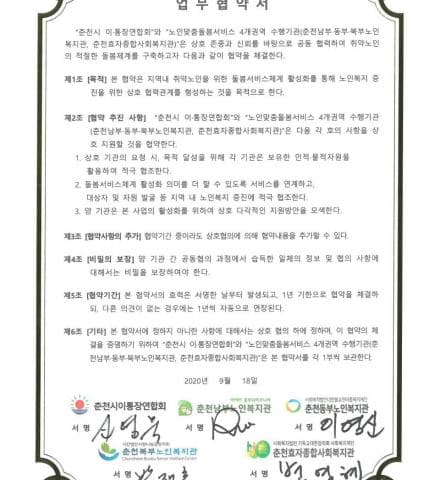 업 무 협 약 서
"춘천시 이·통장연합회"와 "노인맞춤돌봄서비스 4개권역 수행기관(춘천남부·동부·북부노인
복지관, 춘천효자종합사회복지관)"은 상호 존중과 신뢰를 바탕으로 공동 협력하여 취약노인
의 적절한 돌봄체계를 구축하고자 다음과 같이 협약을 체결한다.
제1조 [목적] 본 협약은 지역내 취약노인을 위한 돌봄서비스체계 활성화를 통해 노인복지 증
진을 위한 상호 협력관계를 형성하는 것을 목적으로 한다.
제2조 [협약 추진 사항] "춘천시 이·통장연합회"와 "노인맞춤돌봄서비스 4개권역 수행기관
(춘천남부·동부·북부노인복지관, 춘천효자종합사회복지관)"은 다음 각 호의 사항을 상
호 지원할 것을 협약한다.
1. 상호 기관의 요청 시, 목적 달성을 위해 각 기관은 보유한 인적·물적자원을
활용하여 적극 협조한다.
2. 돌봄서비스체계 활성화 의미를 더 할 수 있도록 서비스를 연계하고,
대상자 및 자원 발굴 등 지역 내 노인복지 증진에 적극 협조한다.
3. 양 기관은 본 사업의 활성화를 위하여 상호 다각적인 지원방안을 모색한다.
제3조 [협약사항의 추가] 협약기간 중이라도 상호협의에 의해 협약내용을 추가할 수 있다.
제4조 [비밀의 보장] 양 기관 간 공동협의 과정에서 습득한 일체의 정보 및 협의 사항에
대해서는 비밀을 보장하여야 한다.
제5조 [협약기간] 본 협약서의 효력은 서명한 날부터 발생되고, 1년 기한으로 협약을 체결하
되, 다른 의견이 없는 경우에는 1년씩 자동으로 연장된다.
제6조 [기타] 본 협약서에 정하지 아니한 사항에 대해서는 상호 협의 하에 정하며, 이 협약의 체
결을 증명하기 위하여 "춘천시 이·통장연합회"와 "노인맞춤돌봄서비스 4개권역 수행기관(춘
천남부·동부·북부노인복지관, 춘천효자종합사회복지관)"은 본 협약서를 각 1부씩 보관한다.
2020년 9월 18일
춘천시이통장연합회 춘천남부노인복지관 춘천동부노인복지관
서 명 서 명 서 명
춘천북부노인복지관 춘천효자종합사회복지관
서 명 서 명